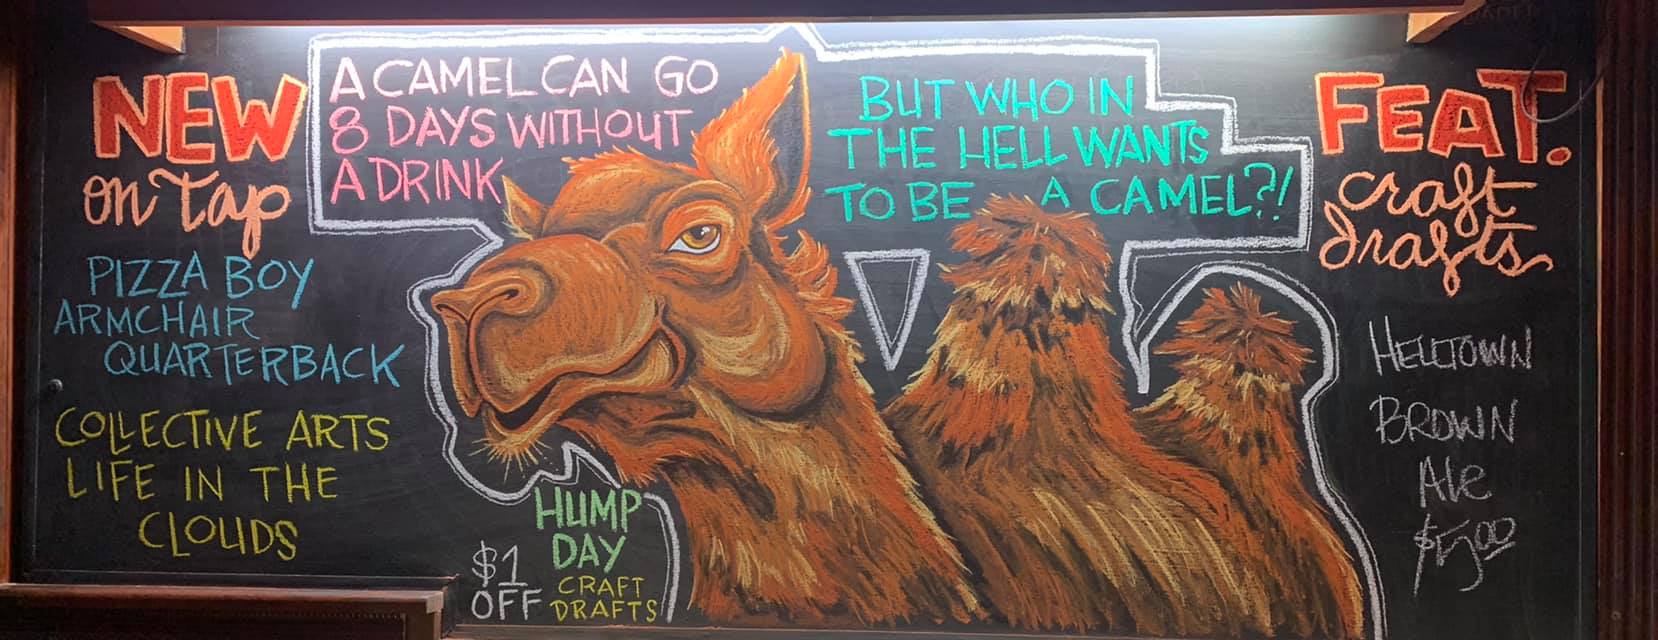 NEW
on Tap
PIZZA BOY
ARMCHAIR
QUARTERBACK
COLLECTIVE ARTS
LIFE IN THE
CLOUDS
A CAMEL CAN GO
8 DAYS WITHOUT
A DRINK
BUT WHO IN
THE HELL WANTS
TO BE A CAMEL?!
HUMP
DAY
$1
OFF
CRAFT
DRAFTS
FEAT.
craft
drafts
HELLTOWN
BROWN
Ale
$5.00